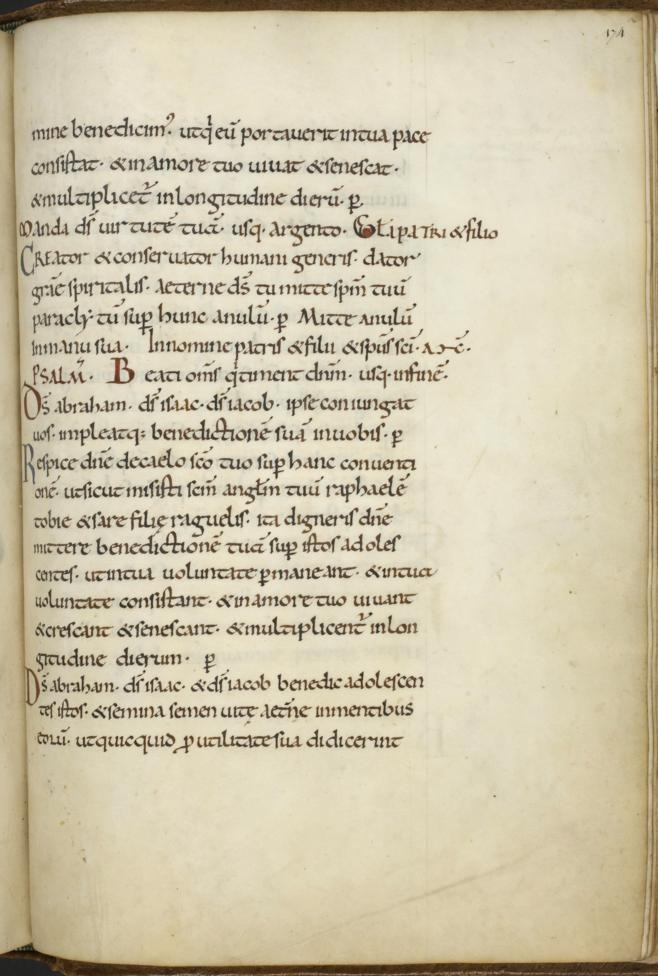 174
mine benedicim᷒· utq̇ eū portauerit intua pace
consistat· & inamore tuo uiuat & senescat·
& multiplicet᷑ inlongitudine dierū· ꝑ
Manda dš uirtutē tuā· usq· argento· Gła patri & filio
Creator & conseruator humani generis· dator
grāe spiritalis· aeterne dš tu mitte spm̄ tuū
paracly· tū sup̱ hunc anulū· ꝑ Mitte anulū
inmanu sua· Innomine patris & filii & sp̄us sc̄i·
Psalm̄· Beati om̄s q̇ timent dnm̄· usq· infinē·
Dš abraham· dš isaac· dš iacob· ipse coniungat
uos· impleatq: benedictionē suā inuobis· ꝑ
Respice dnē decaelo sc̄o tuo sup̱ hanc conuenti
onē· utsicut misisti sc̄m anglm̄ tuū raphaelē
tobie & sare filię raguelis· ita digneris dnē
mittere benedictionē tuā sup̱ istos adoles
centes· utintua uoluntate ꝑmaneant· & intua
uoluntate consistant· & inamore tuo uiuant
& crescant & senescant· & multiplicent᷑ inlon
gitudine dierum· ꝑ
Dš abraham· dš isaac· & dš iacob benedic adolescen
tes istos· & semina semen uitę aet̄ne inmentibus
eorū· utquicquid ꝓ utilitate sua didicerint